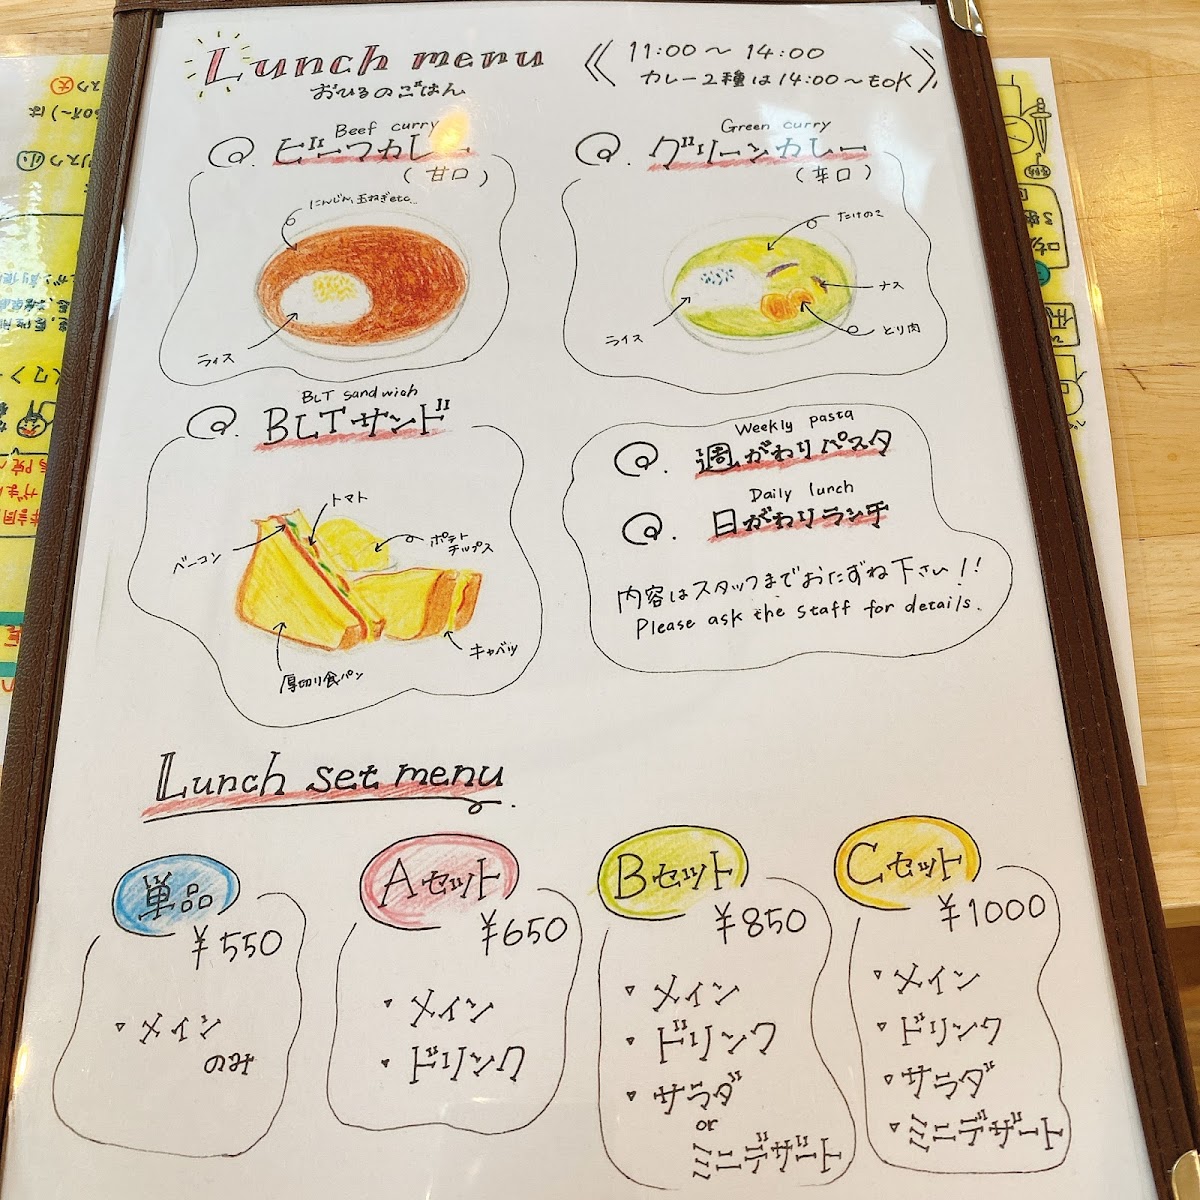 Lunch menu
おひるのごはん
11:00〜14:00
カレー2種は14:00〜もOK
Beef curry
ビーフカレー
(甘口)
にんじん、玉ねぎetc...
ライス
Green curry
グリーンカレー
(辛口)
たけのこ
ナス
とり肉
ライス
BLT sandwich
BLTサンド
トマト
ベーコン
ポテト
チップス
キャベツ
厚切り食パン
Weekly pasta
週がわりパスタ
Daily lunch
日がわりランチ
内容はスタッフまでおたずね下さい!!
Please ask the staff for details.
Lunch set menu
単品
¥550
・メイン
のみ
Aセット
¥650
・メイン
・ドリンク
Bセット
¥850
・メイン
・ドリンク
・サラダ
or
ミニデザート
Cセット
¥1000
・メイン
・ドリンク
・サラダ
・ミニデザート